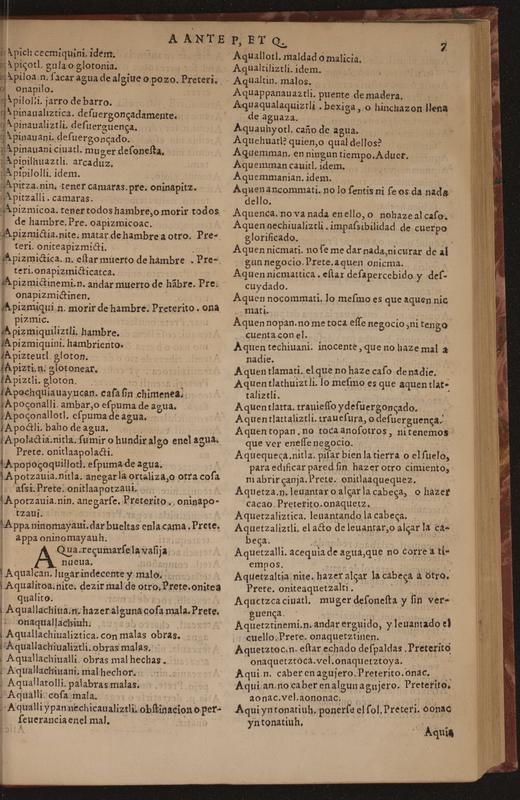 A ANTE P, ET Q.
7
Apich cecmiquini. idem.
Apiçotl. gula o glotonia.
Apiloa. n. sacar agua de algiue o pozo. Preteri.
onapilo.
Apilolli. jarro de barro.
Apinaualiztica. desuergonçadamente.
Apinaualiztli. desuerguença.
Apinauani. desuergonçado.
Apinauani ciuatl. muger desonesta.
Apipilhuaztli. arcaduz.
Apipilolli. idem.
Apitza. nin. tener camaras. pre. oninapitz.
Apitzalli. camaras.
Apizmicoa. tener todos hambre, o morir todos
de hambre. Pre. oapizmicoac.
Apizmictia. nite. matar de hambre a otro. Pre-
teri. oniteapizmicti.
Apizmictica. n. estar muerto de hambre. Pre-
teri. onapizmicticatca.
Apizmictinemi. n. andar muerto de hãbre. Pre.
onapizmictinen.
Apizmiqui. n. morir de hambre. Preterito. ona
pizmic.
Apizmiquiliztli. hambre.
Apizmiquini. hambriento.
Apizteutl. gloton.
Apizti. n. glotonear.
Apiztli. gloton.
Apochquiauayucan. casa sin chimenea.
Apoçonalli. ambar, o espuma de agua.
Apoçonallotl. espuma de agua.
Apoctli. baho de agua.
Apolactia. nitla. sumir o hundir algo enel agua.
Prete. onitlaapolacti.
Apopoçoquillotl. espuma de agua.
Apotzauia. nitla. anegar la ortaliza, o otra cosa
assi. Prete. onitlaapotzaui.
Apotzauia. nin. anegarse. Preterito, oninapo-
tzaui.
Appa ninomayaui. dar bueltas enla cama. Prete.
appa oninomayauh.
AQua. reçumarse la vasija
nueua.
Aqualcan. lugar indecente y malo.
Aqualitoa. nite. dezir mal de otro. Prete. onitea
qualito.
Aquallachiua. n. hazer alguna cosa mala. Prete.
onaquallachiuh.
Aquallachiualiztica. con malas obras.
Aquallachiualiztli. obras malas.
Aquallachiualli. obras mal hechas.
Aquallachiuani. mal hechor.
Aquallatolli. palabras malas.
Aqualli. cosa mala.
Aqualli ypan nechicaualiztli. obstinacion o per-
seuerancia enel mal.
Aquallotl. maldad o malicia.
Aqualtiliztli. idem.
Aqualtin. malos.
Aquappanauaztli. puente de madera.
Aquaqualaquiztli. bexiga, o hinchazon llena
de aguaza.
Aquauhyotl. caño de agua.
Aquehuatl? quien, o qual dellos?
Aquemman. en ningun tiempo. Aduer.
Aquemman cauitl. idem.
Aquemmanian. idem.
Aquen ancommati. no lo sentis ni se os da nada
dello.
Aquenca. no va nada en ello, o no haze al caso.
Aquen nechiualiztli. impassibilidad de cuerpo
glorificado.
Aquen nicmati. no se me dar nada, ni curar de al
gun negocio. Prete. aquen onicma.
Aquen nicmattica. estar desapercebido y des-
cuydado.
Aquen nocommati. lo mesmo es que aquen nic
mati.
Aquen nopan. no me toca esse negocio, ni tengo
cuenta con el.
Aquen techiuani. inocente, que no haze mal a
nadie.
Aquen tlamati. el que no haze caso de nadie.
Aquen tlathuiztli. lo mesmo es que aquen tlat-
taliztli.
Aquen tlatta. trauiesso y desuergonçado.
Aquen tlattaliztli. trauesura, o desuerguença.
Aquen topan. no toca anosotros, ni tenemos
que ver enesse negocio.
Aquequeça. nitla. pisar bien la tierra o el suelo,
para edificar pared sin hazer otro cimiento,
ni abrir çanja. Prete. onitlaaquequez.
Aquetza. n. leuantar o alçar la cabeça, o hazer
cacao. Preterito. onaquetz.
Aquetzaliztica. leuantando la cabeça.
Aquetzaliztli. el acto de leuantar, o alçar la ca-
beça.
Aquetzalli. acequia de agua, que no corre a ti-
empos.
Aquetzaltia. nite. hazer alçar la cabeça a otro.
Prete. oniteaquetzalti.
Aquetzca ciuatl. muger desonesta y sin ver-
guença.
Aquetztinemi. n. andar erguido, y leuantado el
cuello. Prete. onaquetztinen.
Aquetztoc. n. estar echado despaldas. Preterito
onaquetztoca. vel. onaquetztoya.
Aqui. n. caber en agujero. Preterito. onac.
Aqui. an. no caber en algun agujero. Preterito.
aonac. vel. aononac.
Aqui yn tonatiuh. ponerse el sol. Preteri. oonac
yn tonatiuh.
Aquia